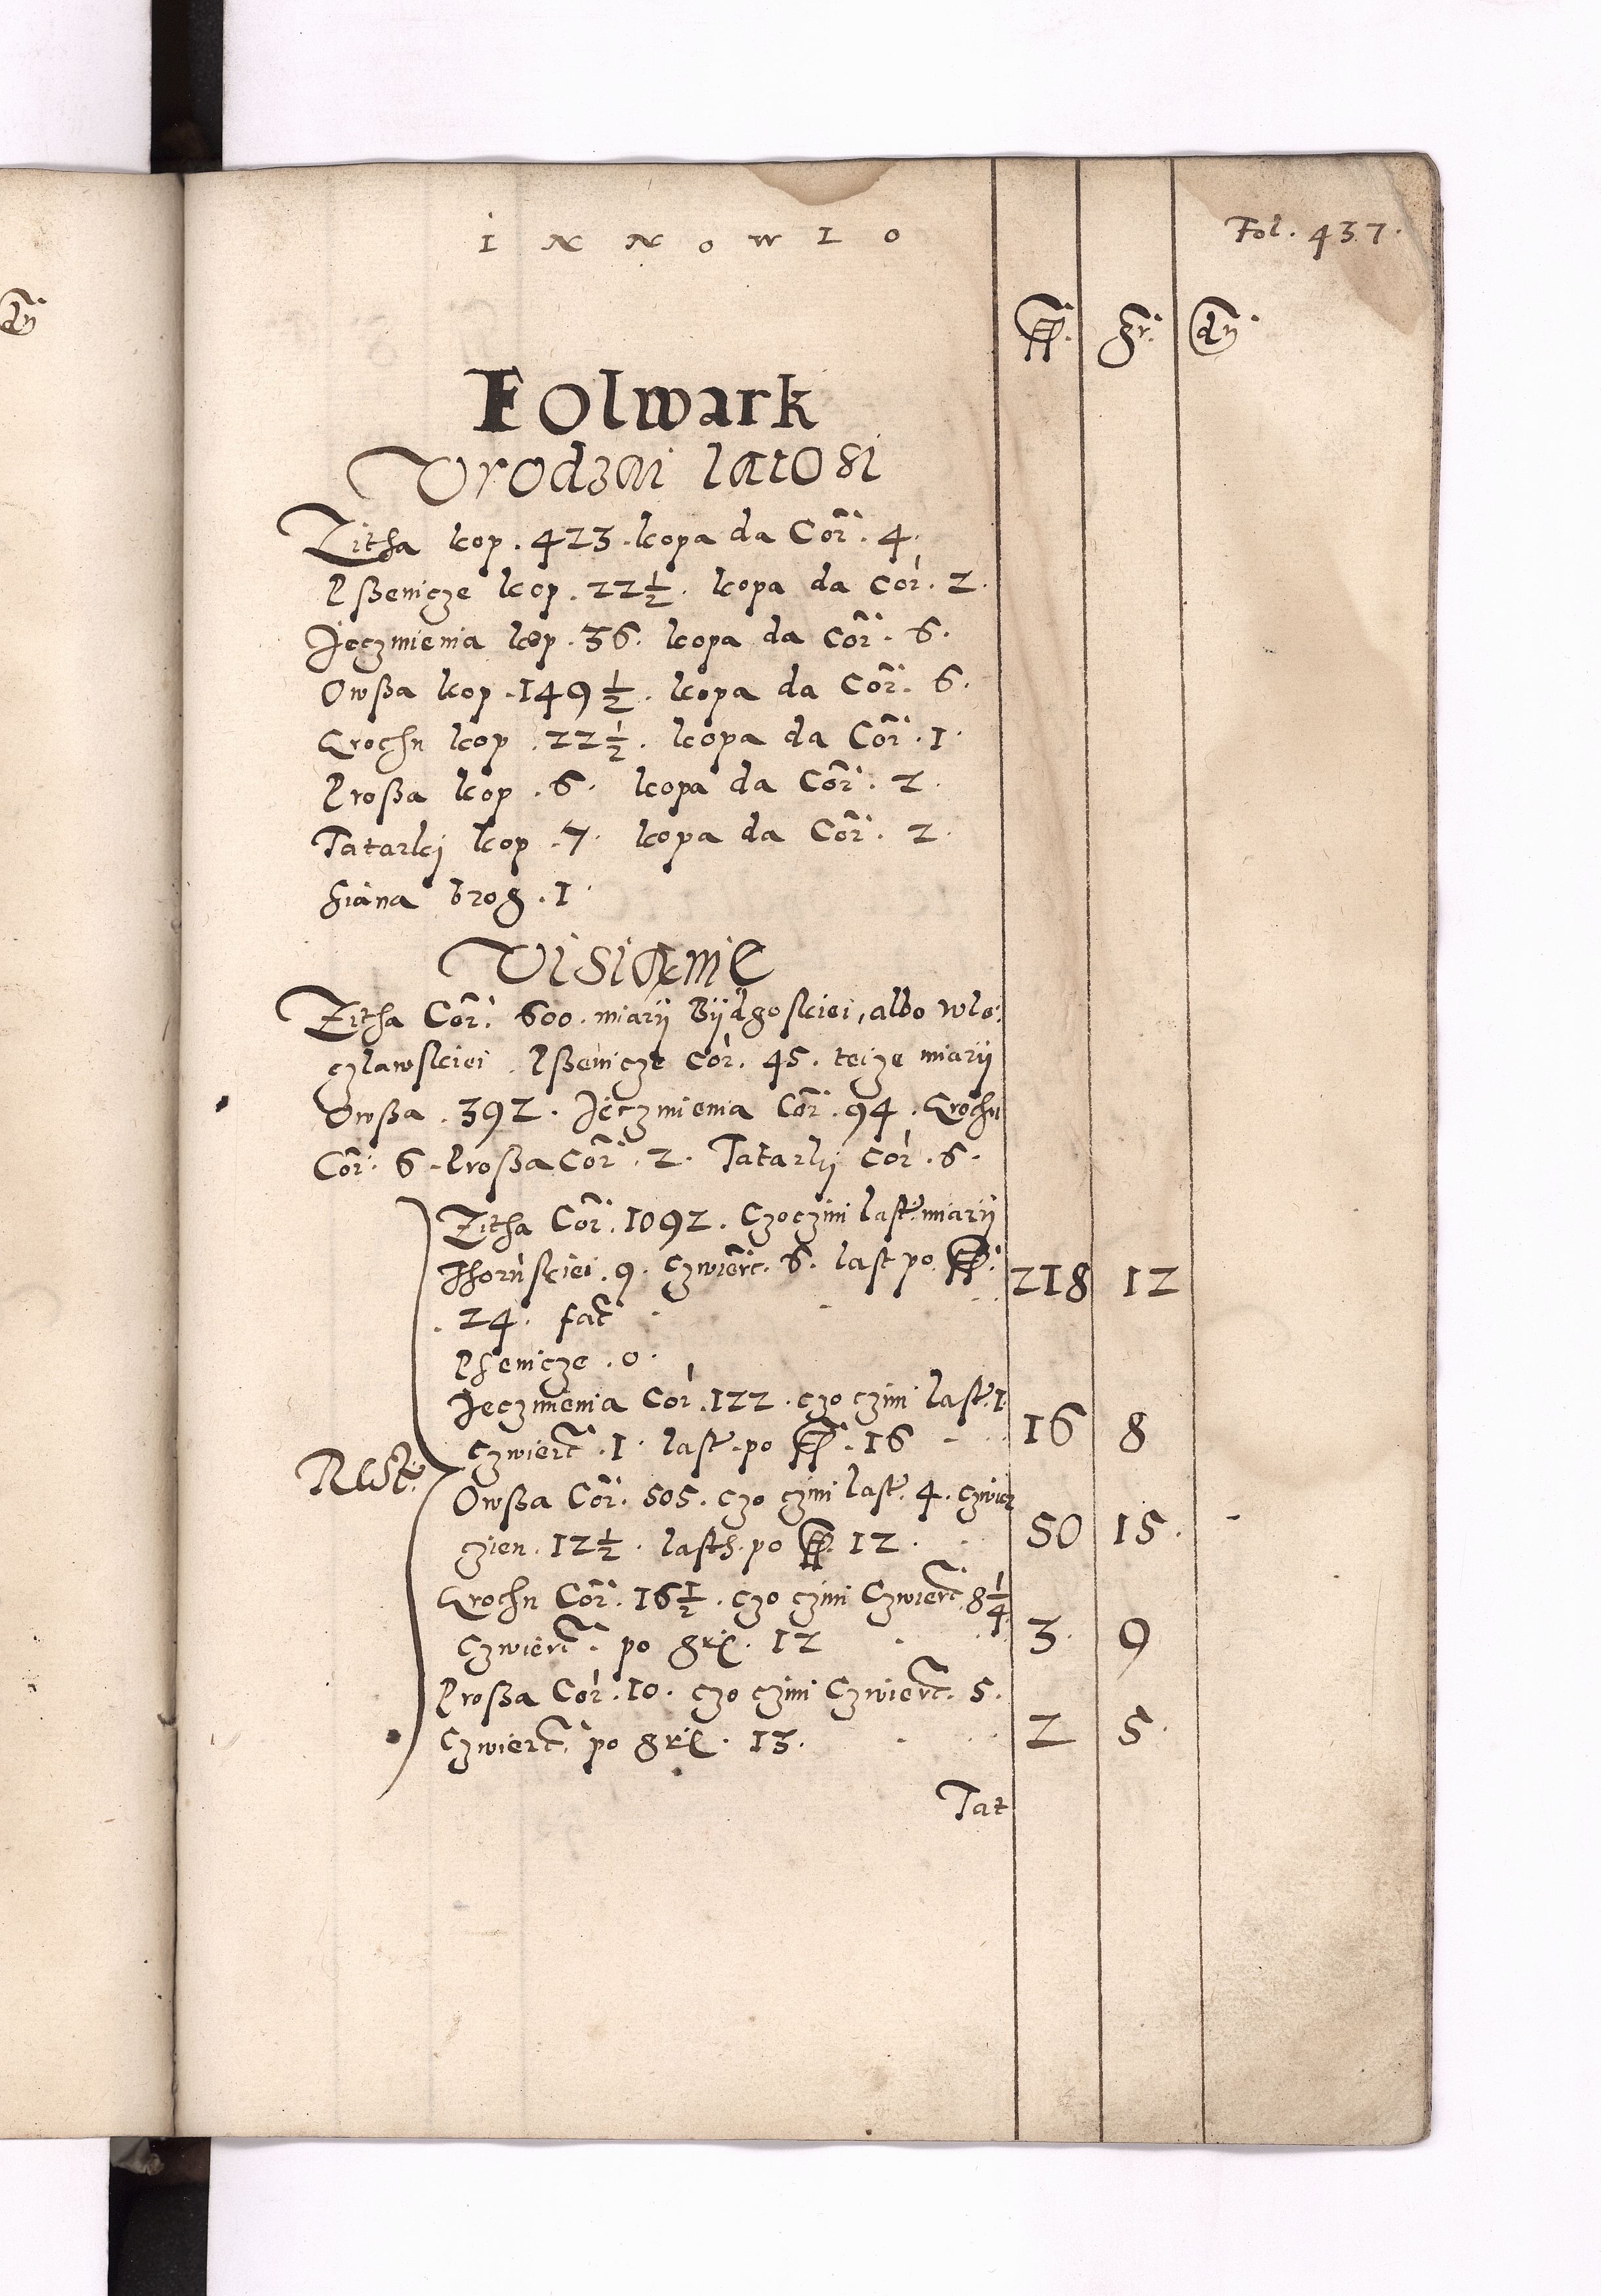 INNOWLO
Fol. 437.
fl. gr. dn.
dn
Folwark
Vrodzai latosi
Zitha kop. 423. kopa da Cor. 4.
Pßenicze kop. 22 1/2. kopa da Cor. 2.
Jeczmienia kop. 36. kopa da Cor. 6.
Owßa kop. 149 1/2. kopa da Cor. 6.
Grochu kop. 22 1/2. kopa da Cor. 1.
Proßa kop. 6. kopa da Cor. 2.
Tatarki kop. 7. kopa da Cor. 2.
Siana brog. 1.
Visianie
Zitha Cor. 600. miarÿ Bÿdgoskiei, albo Wlo:
czlawskiei. Pßenicze Cor. 45. teize miarÿ
Owßa. 392. Jeczmienia Cor. 94. Grochu
Cor. 6. Proßa Cor. 2. Tatarki Cor. 6.
Zitha Cor. 1092. Czo czini last. miarÿ
Thorunskiei. 9. Czwierc. 6. last po fl.
24. fac. 218 12
Psenicze. 0.
Jeczmienia Cor. 122. czo czini last. 1.
czwierc. 1. last. po fl. 16 16 8
Rest.
Owßa Cor. 505. czo czini last. 4. czwier
czien. 12 1/2. lasth. po fl. 12. 50 15. -
Grochu Cor. 16 1/2. czo czini Czwierc. 8 1/4
Czwierc. po gr. 12 3. 9
Proßa Cor. 10. czo czini Czwierc. 5.
Czwierc. po gr. 13. 2 5.
Tat